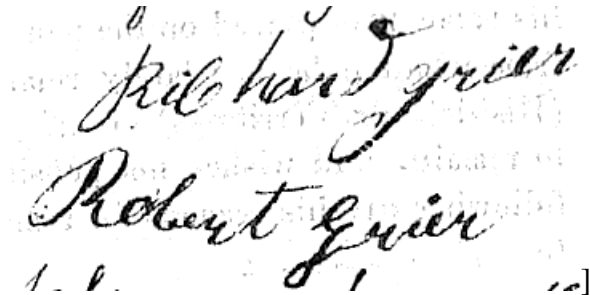 Richard grier
Robert Grier